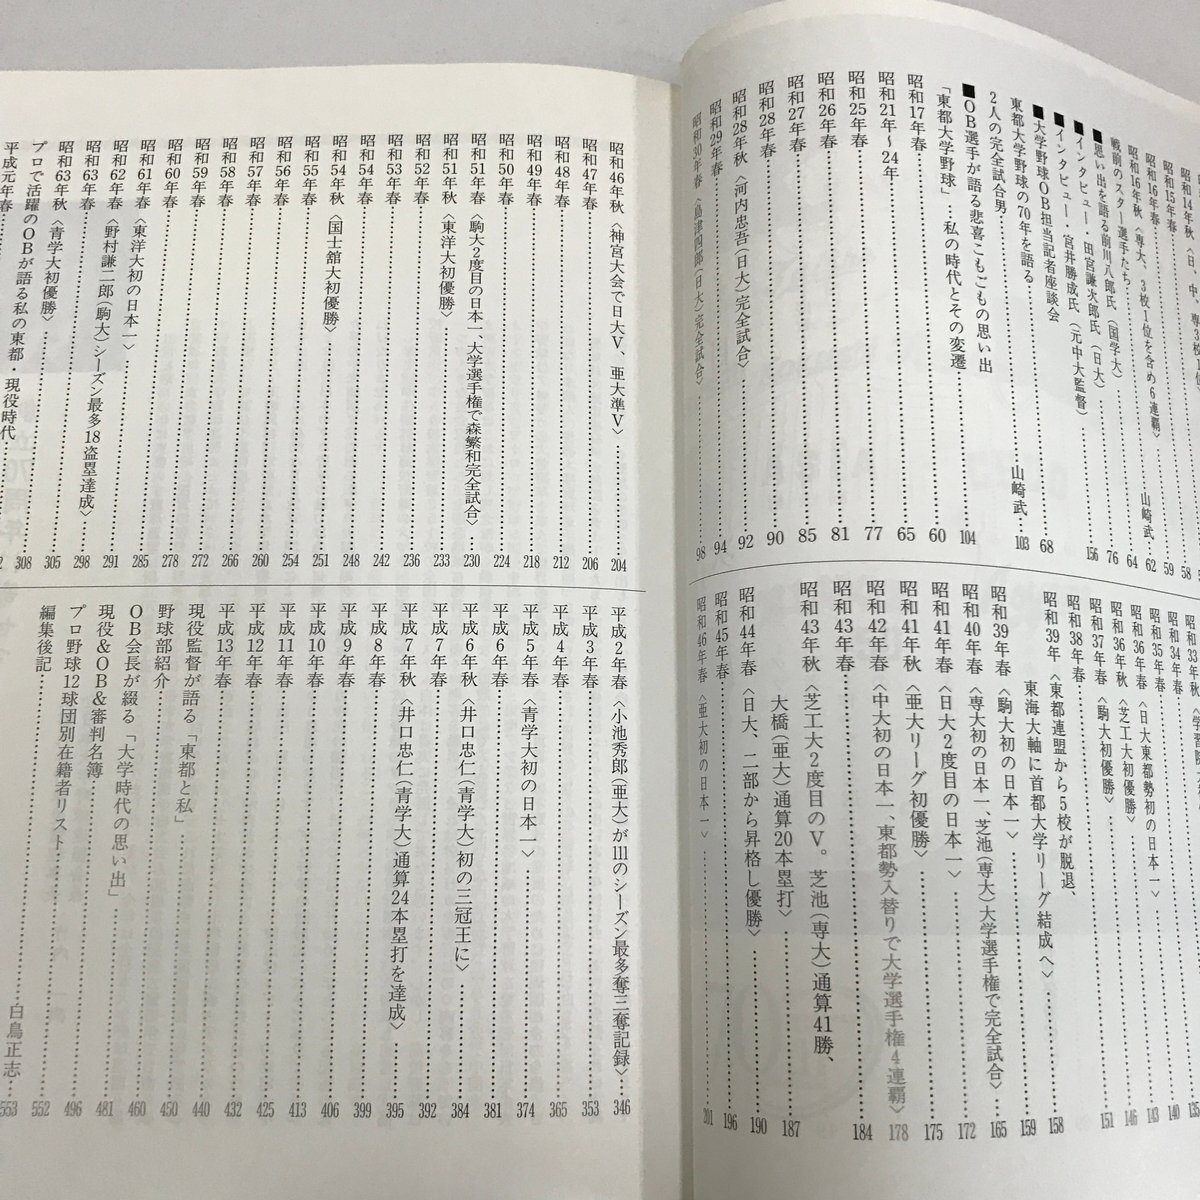 昭和14年秋
昭和15年春
昭和16年春……59
昭和16年秋〈専大、3校1位を含め6連覇〉……62
戦前のスター選手たち……山崎武…64
■思い出を語る前川八郎氏（国学大）……76
■インタビュー・田宮謙次郎氏（日大）……156
■インタビュー・宮井勝成氏（元中大監督）
■大学野球OB担当記者座談会
東都大学野球の70年を語る……68
2人の完全試合男……山崎武…103
■OB選手が語る悲喜こもごもの思い出
「東都大学野球」・私の時代とその変遷……104
昭和17年春……60
昭和21年〜24年……65
昭和25年春……77
昭和26年春……81
昭和27年春……85
昭和28年春……90
昭和28年秋〈河内忠吾（日大）完全試合〉……92
昭和29年春……94
昭和30年春〈島津四郎（日大）完全試合〉……98
昭和33年秋〈学習院……135
昭和34年春……140
昭和35年春……143
昭和36年春〈日大東都勢初の日本一〉……146
昭和36年秋〈芝工大初優勝〉……151
昭和37年春〈駒大初優勝〉
昭和38年春……158
昭和39年〈東都連盟から5校が脱退、
東海大軸に首都大学リーグ結成へ〉……159
昭和39年春〈駒大初の日本一〉……165
昭和40年春〈専大初の日本一、芝池（専大）大学選手権で完全試合〉……172
昭和41年春〈日大2度目の日本一〉……175
昭和41年秋〈亜大リーグ初優勝〉……178
昭和42年秋〈中大初の日本一、東都勢入替りで大学選手権4連覇〉……184
昭和43年春
昭和43年秋〈芝工大2度目のV。芝池（専大）通算41勝、
大橋（亜大）通算20本塁打〉……187
昭和44年春〈日大、二部から昇格し優勝〉……190
昭和45年春……196
昭和46年春〈亜大初の日本一〉……201
昭和46年秋〈神宮大会で日大V、亜大準V〉……204
昭和47年春……206
昭和48年春……212
昭和49年春……218
昭和50年春……224
昭和51年春〈駒大2度目の日本一、大学選手権で森繁和完全試合〉……230
昭和51年秋〈東洋大初優勝〉……233
昭和52年春……236
昭和53年春……242
昭和54年春……248
昭和54年秋〈国士舘大初優勝〉……251
昭和55年春……254
昭和56年春……260
昭和57年春……266
昭和58年春……272
昭和59年春……278
昭和60年春
昭和61年春〈東洋大初の日本一〉……285
昭和62年春……291
昭和63年春〈野村謙二郎（駒大）シーズン最多18盗塁達成〉……298
昭和63年秋〈青学大初優勝〉……305
プロで活躍のOBが語る私の東都・現役時代……308
平成元年春
平成2年春〈小池秀郎（亜大）が111のシーズン最多奪三奪記録〉…346
平成3年春……353
平成4年春……365
平成5年春〈青学大初の日本一〉……374
平成6年春……381
平成6年秋〈井口忠仁（青学大）初の三冠王に〉……384
平成7年春……392
平成7年秋〈井口忠仁（青学大）通算24本塁打を達成〉……395
平成8年春……399
平成9年春……406
平成10年春……413
平成11年春……425
平成12年春……432
平成13年春
現役監督が語る「東都と私」……440
野球部紹介……450
OB会長が綴る「大学時代の思い出」……460
現役&OB&審判名簿……481
プロ野球12球団別在籍者リスト……496
編集後記……552
白鳥正志…553